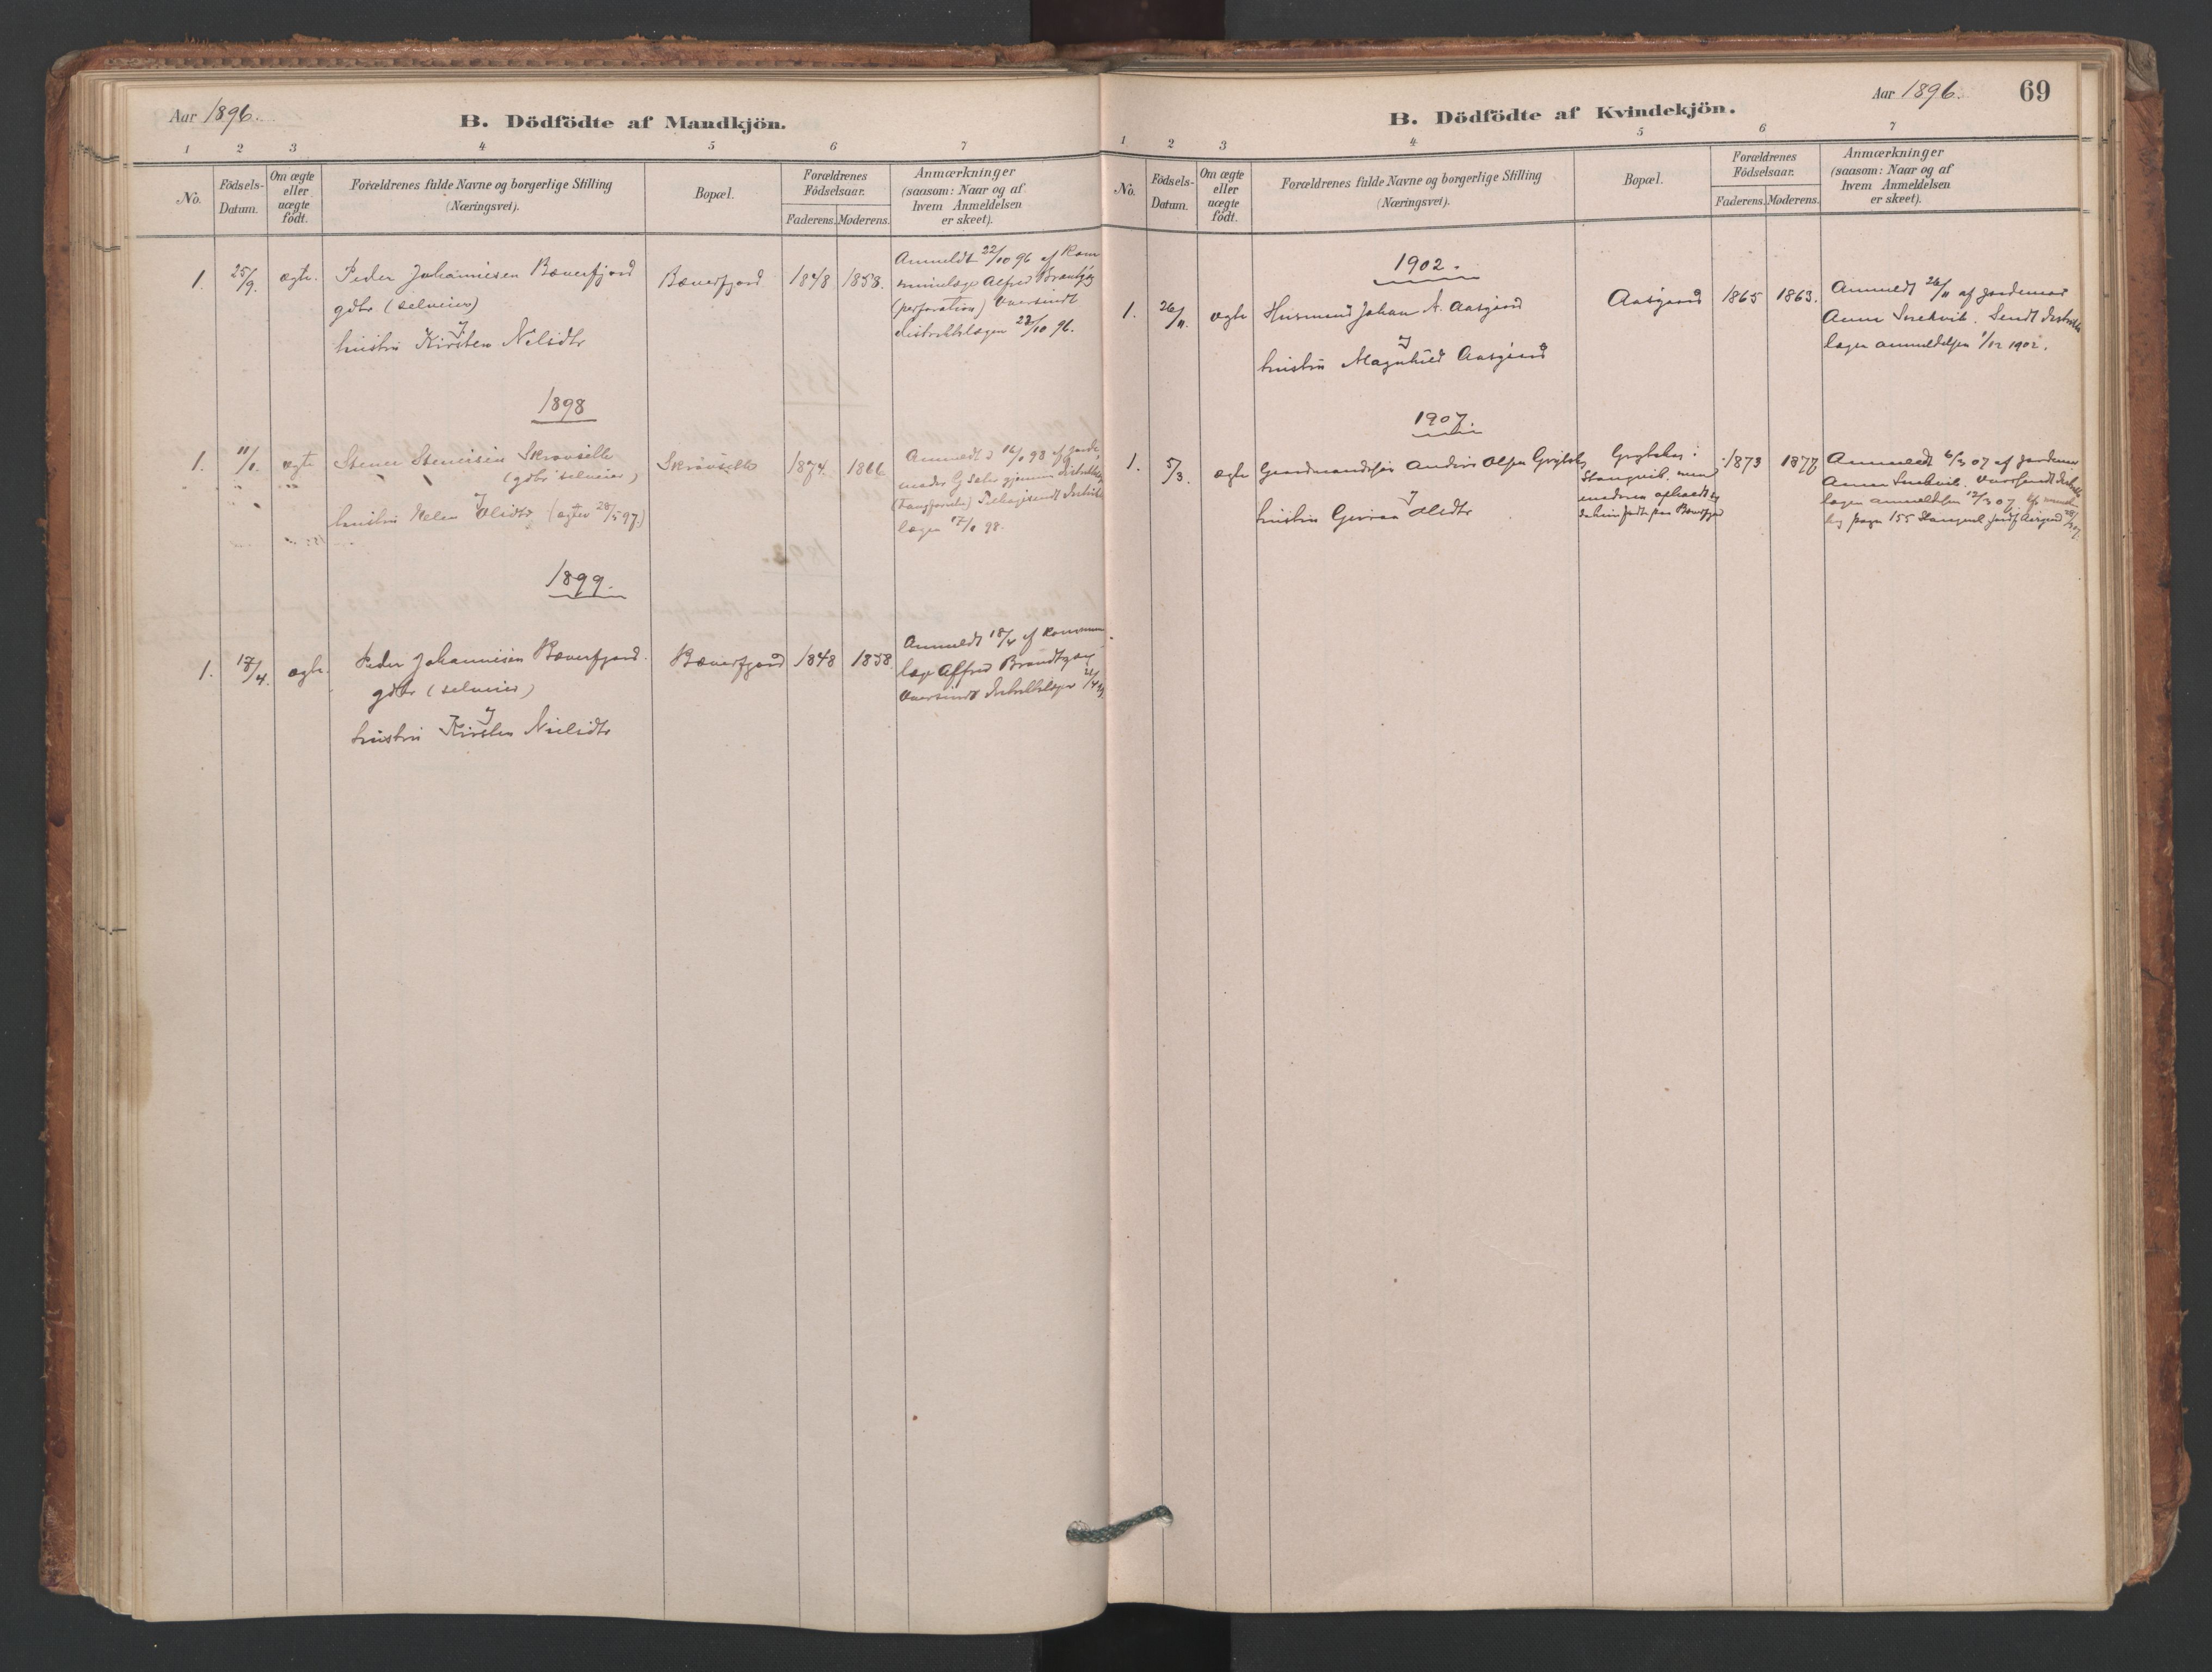 Aar 1896.
B. Dödfödte af Mandkjön.
1 2 3 4 5 6 7
No.
Födsels-Datum.
Om ægte eller uægte födt.
Forældrenes fulde Navne og borgerlige Stilling
(Næringsvei).
Bopæl.
Forældrenes Födselsaar.
Faderens. Moderens.
Anmærkninger
(saasom: Naar og af
hvem Anmeldelsen
er skeet).
1. 25/9. ægte. Peder Johannesen Bæverfjord Bæverfjord 1848 1858. Anmeldt 22/10 96 af Kom
gdbr (selveier)
hustru Kirsten Nilsdtr
munelæge Alfred
(perforation) Oversendt
distriktslægen 22/10 96.
1898
1. 11/1. ægte Stener Stenersen Skrøvseth Skrøvseth 1874. 1866
(gdbr selveier)
hustru Olsdtr (ægtev 28/5 97.)
Anmeldt d 16/1 98 af jorde,
moder
(Tangforløsn)
lægen 17/1 98.
1899.
1. 17/4. ægte. Peder Johannesen Bæverfjord. Bæverfjord 1848 1858.
gdbr (selveier)
hustru Kirsten Nielsdtr
Anmeldt 18/4 af Kommune
læge Alfred
Oversendt Distriktslægen
Aar 1896. 69
B. Dödfödte af Kvindekjön.
1 2 3 4 5 6 7
No.
Födsels-Datum.
Om ægte eller uægte födt.
Forældrenes fulde Navne og borgerlige Stilling
(Næringsvei).
Bopæl.
Forældrenes Födselsaar.
Faderens. Moderens.
Anmærkninger
(saasom: Naar og af
hvem Anmeldelsen
er skeet).
1902.
1. 26/11. ægte Husmand Johan A. Aasgård Aasgaard 1865 1863.
hustru Magnhild Aasgård
Anmeldt 26/11 af Jordemor
Anne Snekvik. Sendt distrikts
lægen anmeldelsen 1/12 1902.
1907.
1. 5/3. ægte Gaardmandssøn Anders Olsen 1873 1877
hustru Olsdtr
Stangvik, men
moderen opholdt sig
født paa Bæverfjord
Anmeldt 6/3 07 af Jordemor
Anne Snekvik. Oversendt distrikts
lægen anmeldelsen 12/3 07
pagn 155 Stangvik